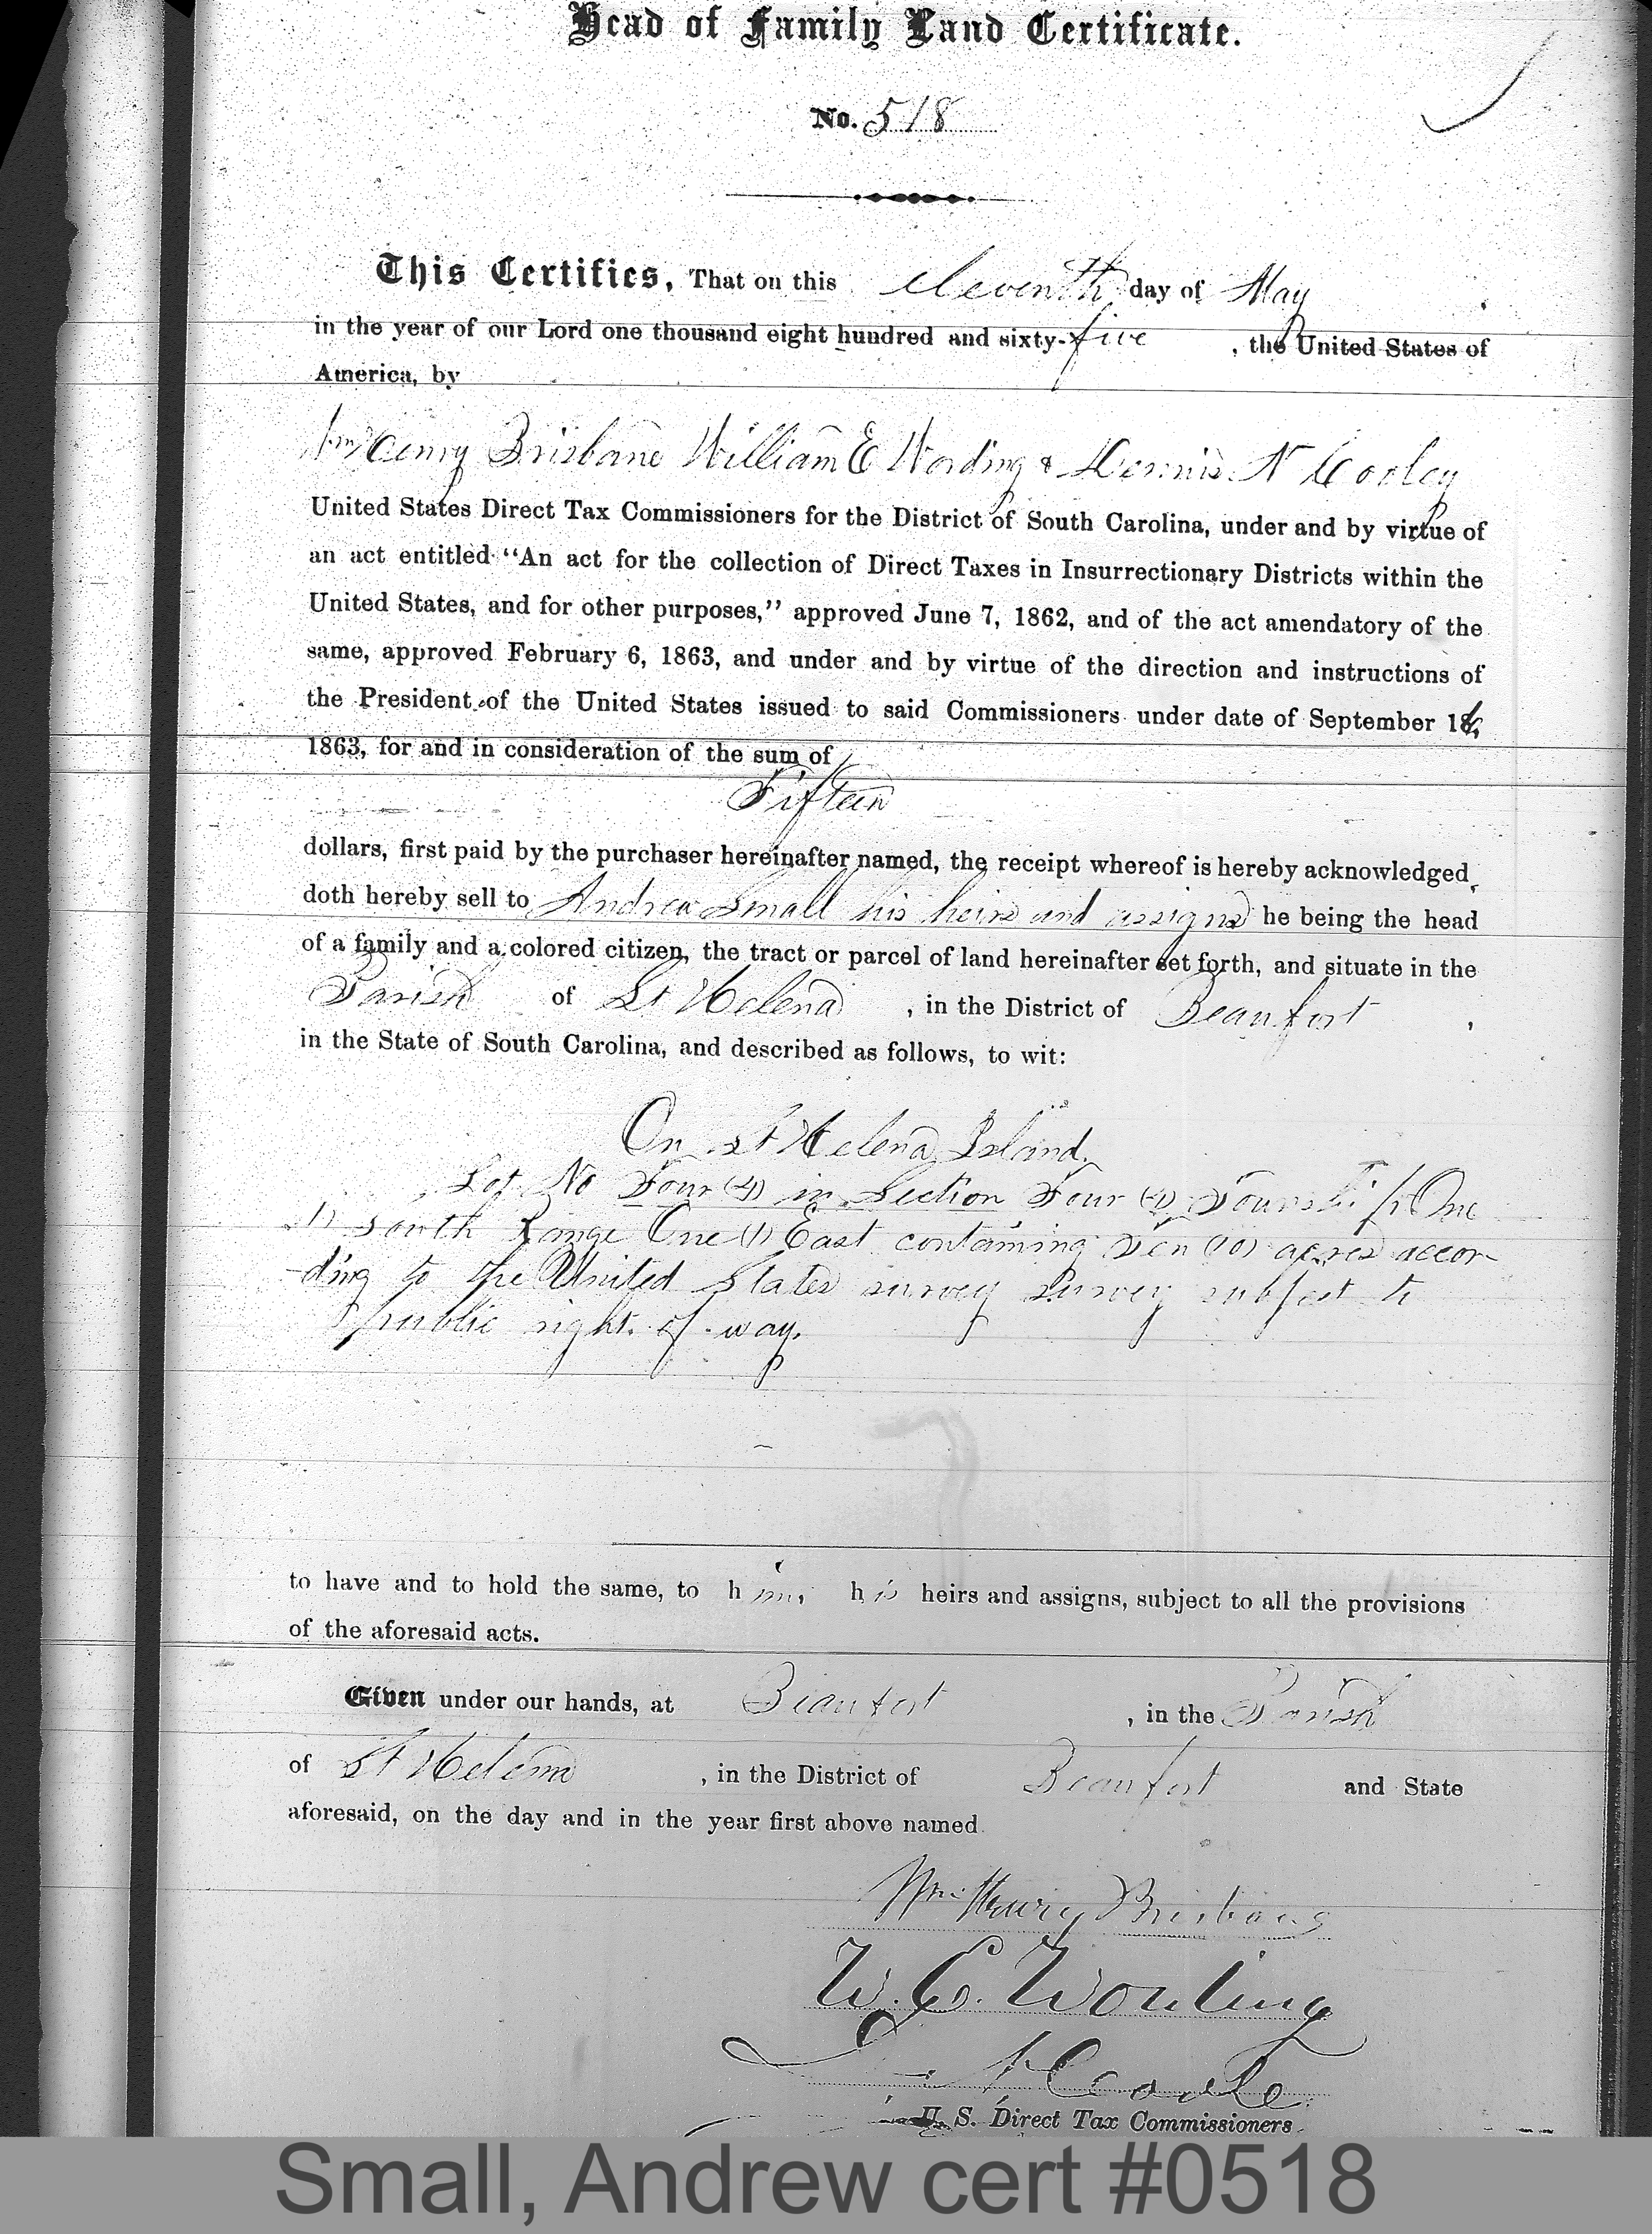 Head of Family Land Certificate.
No. 518
This Certifies, That on this eleventh day of May
in the year of our Lord one thousand eight hundred and sixty-five, the United States of
America, by
Wm Henry Brisbane William E Wording & Dennis N Cooley
United States Direct Tax Commissioners for the District of South Carolina, under and by virtue of
an act entitled "An act for the collection of Direct Taxes in Insurrectionary Districts within the
United States, and for other purposes," approved June 7, 1862, and of the act amendatory of the
same, approved February 6, 1863, and under and by virtue of the direction and instructions of
the President of the United States issued to said Commissioners under date of September 16,
1863, for and in consideration of the sum of
Fifteen
dollars, first paid by the purchaser hereinafter named, the receipt whereof is hereby acknowledged,
doth hereby sell to Andrew Small his heirs and assigns he being the head
of a family and a colored citizen, the tract or parcel of land hereinafter set forth, and situate in the
Parish of St Helena, in the District of Beaufort,
in the State of South Carolina, and described as follows, to wit:
On St Helena Island.
Lot No Four (4) in Section Four (4) Township One
(1) South Range One (1) East containing Ten (10) acres accor-
-ding to the United States survey survey subject to
public right of way.
to have and to hold the same, to him, his heirs and assigns, subject to all the provisions
of the aforesaid acts.
Given under our hands, at Beaufort, in the Parish
of St Helena, in the District of Beaufort and State
aforesaid, on the day and in the year first above named
Wm Henry Brisbane
W. E. Wording
D. N. Cooley
U. S. Direct Tax Commissioners.
Small, Andrew cert #0518